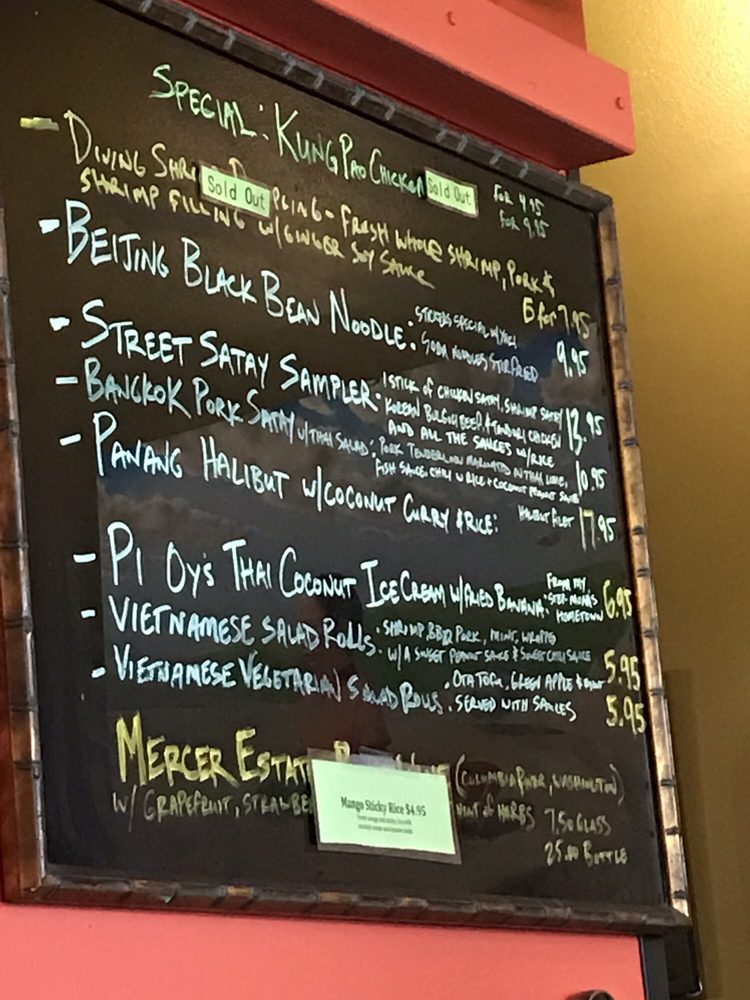 SPECIAL: KUNG PAO CHICKEN
Sold Out
FOR 4.95
FOR 9.95
- DIVING SHRI
Sold Out
PLING - FRESH WHOLE SHRIMP, PORK &
SHRIMP FILLING W/GINGER SOY SAUCE
6 for 7.95
- BEIJING BLACK BEAN NOODLE:
SPECIAL W/
SOBA NOODLES STIR FRIED
9.95
- STREET SATAY SAMPLER.
1 STICK OF CHICKEN SATAY, SHRIMP SATAY
KOREAN BULGOGI BEEF & TANDORI CHICKEN
AND ALL THE SAUCES W/RICE
13.95
- BANGKOK PORK SATAY W/THAI SALAD:
PORK TENDERLOIN MARINATED IN THAI LIME,
FISH SAUCE, CHILI W RICE + COCONUT PEANUT SAUCE
10.95
- PANANG HALIBUT W/COCONUT CURRY & RICE:
HALIBUT FILET
17.95
- PI OY'S THAI COCONUT ICE CREAM W/FRIED BANANA.
FROM MY
STEP MOM'S
HOMETOWN
6.95
- VIETNAMESE SALAD ROLLS.
SHRIMP, BBQ PORK, MINT, WRAPPED
W/A SWEET PEANUT SAUCE & SWEET CHILI SAUCE
5.95
- VIETNAMESE VEGETARIAN SALAD ROLLS.
GREEN APPLE &
SERVED WITH SAUCES
5.95
MERCER ESTAT
(COLUMBIA RIVER, WASHINGTON)
W/ GRAPEFRUIT, STRAWBE
HINT OF HERBS
7.50 GLASS
25.00 BOTTLE
Mango Sticky Rice $4.95